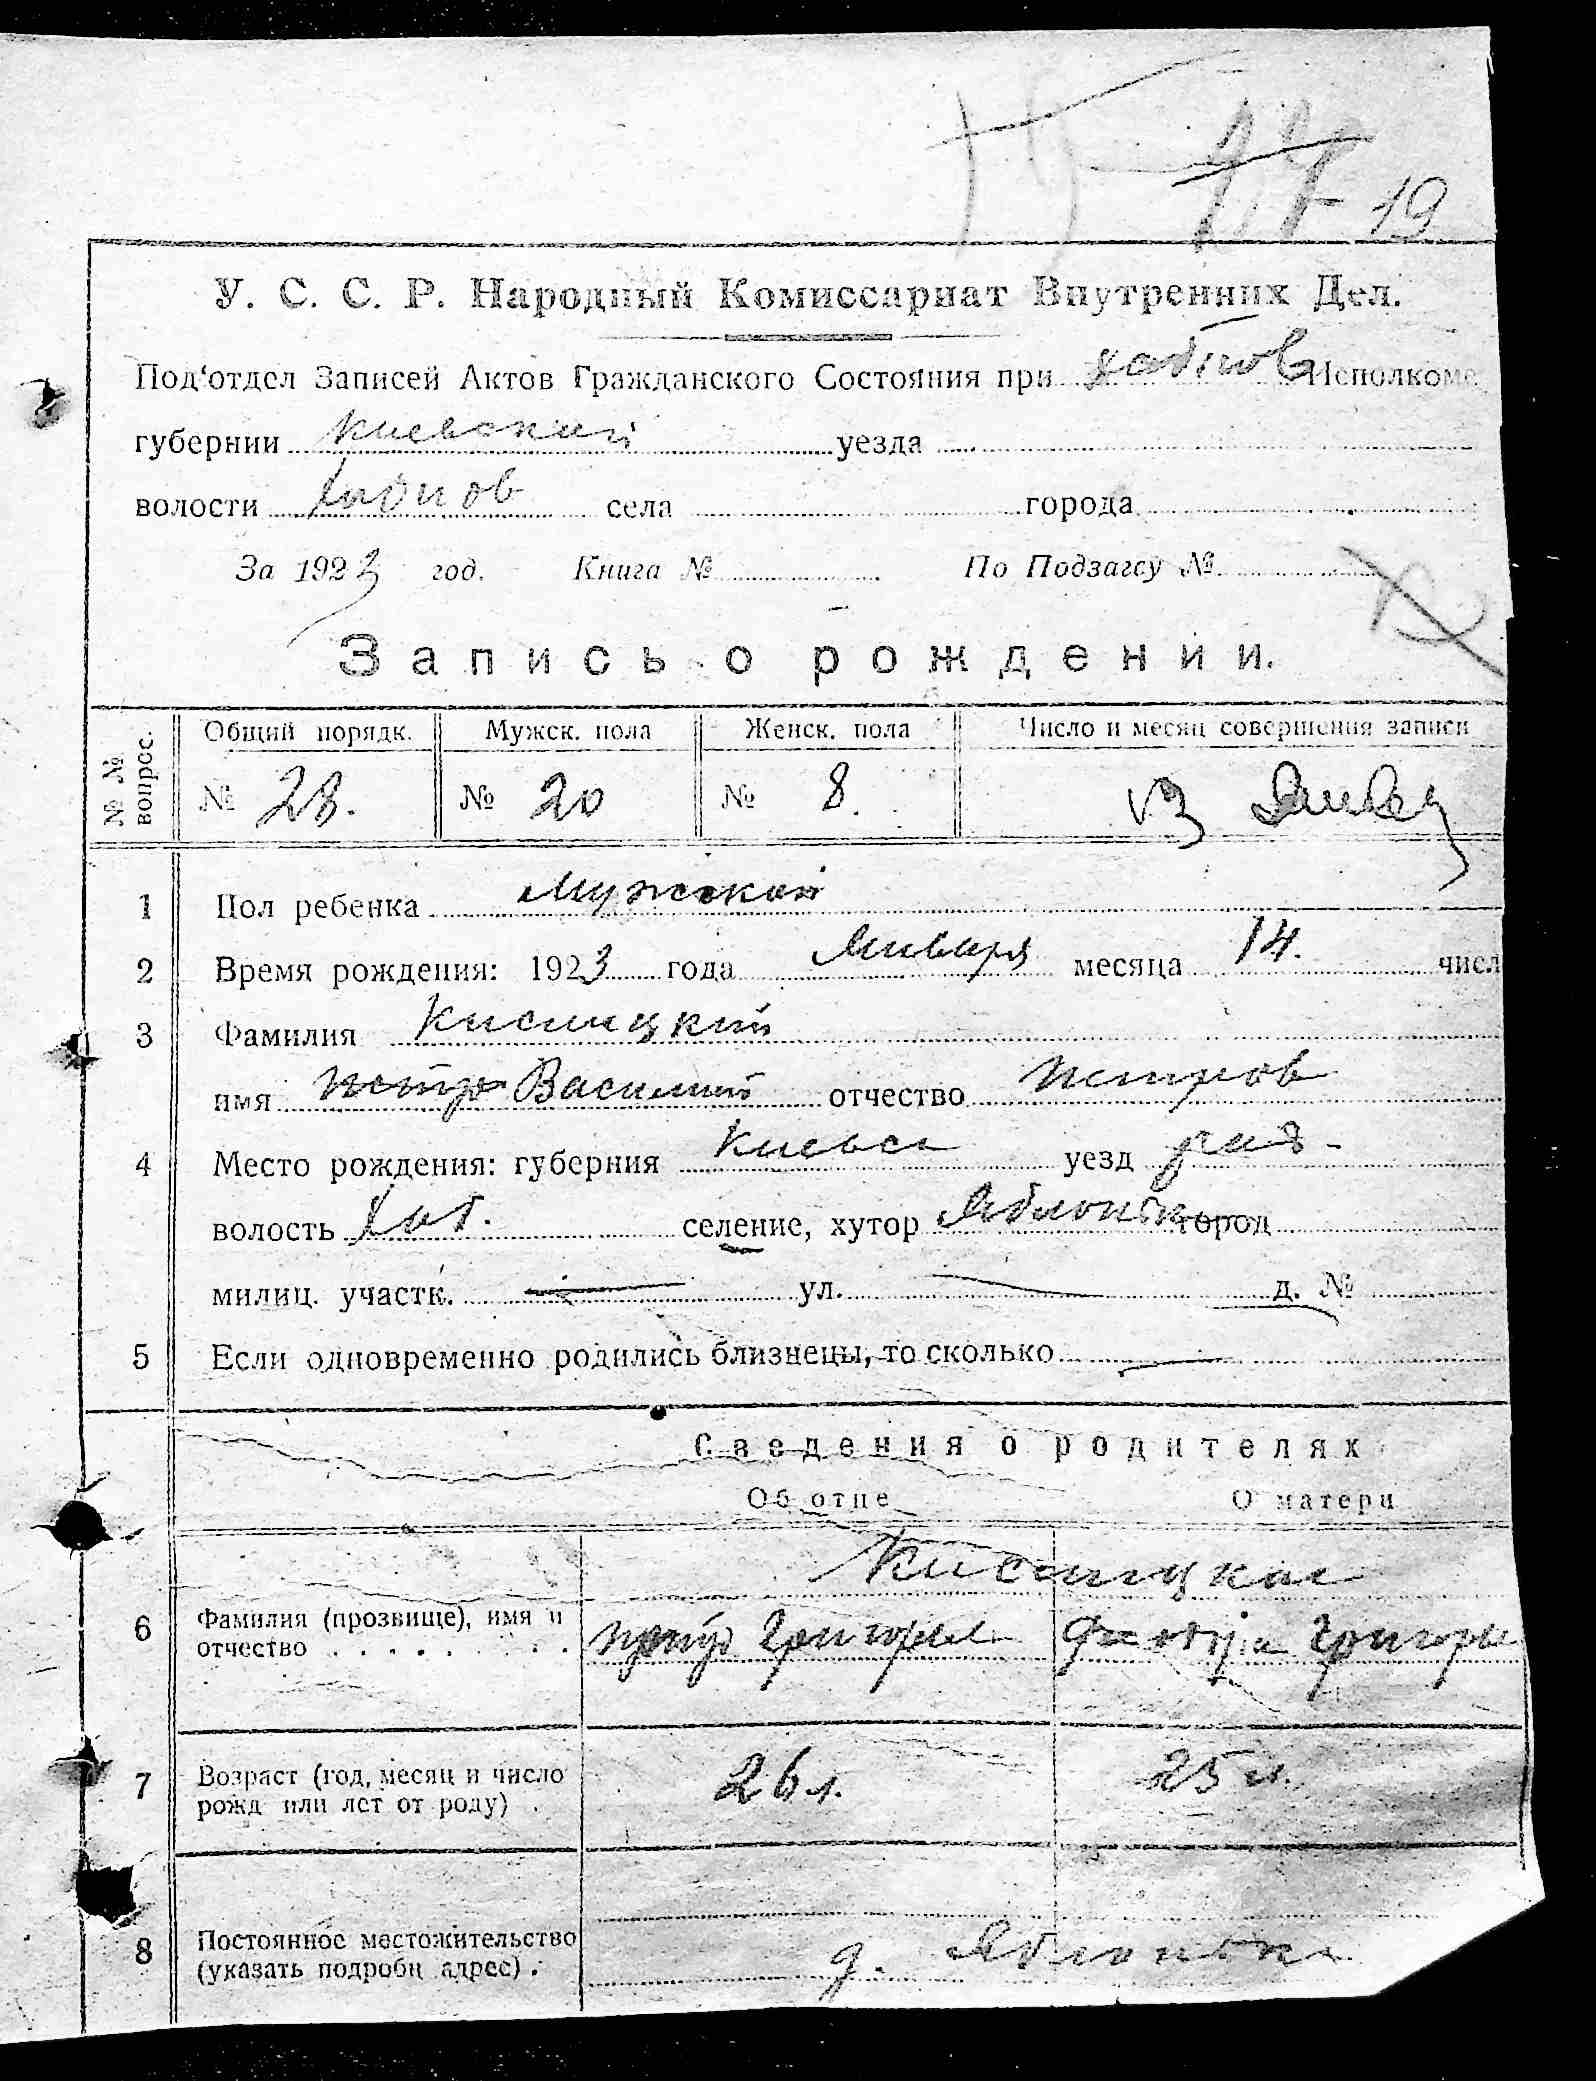 19
У. С. С. Р. Народный Комиссариат Внутренних Дел.
Под'отдел Записей Актов Гражданского Состояния при Хабнов Исполкоме
губернии Киевский уезда
волости Хабнов села города
За 1923 год. Книга № По Подзагсу №
Запись о рождении.
№ № вопрос. Общий порядк. Мужск. пола Женск. пола Число и месяц совершения записи
№ 28. № 20 № 8.
1 Пол ребенка Мужской
2 Время рождения: 1923 года Января месяца 14. числ
3 Фамилия Кисницкий
имя Петро Василий отчество Петров
4 Место рождения: губерния Киевск уезд рад
волость Хаб. селение, хутор Яблонька город
милиц. участк. ул. д. №
5 Если одновременно родились близнецы, то сколько
Сведения о родителях
Об отце О матери
Кисницкие
6 Фамилия (прозвище), имя и отчество Петр Григорьев Григорьев
7 Возраст (год, месяц и число рожд или лет от роду) 26 л. 25 л.
8 Постоянное местожительство (указать подробн адрес). д. Яблонька